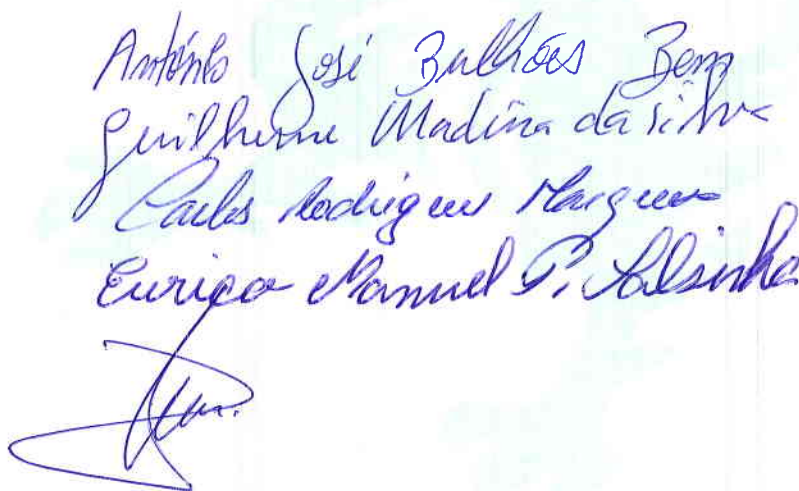 António José Bulhões Bom
Guilherme Madina da Silva
Carlos Rodrigues Marques
Eurico Manuel P. Salsinha